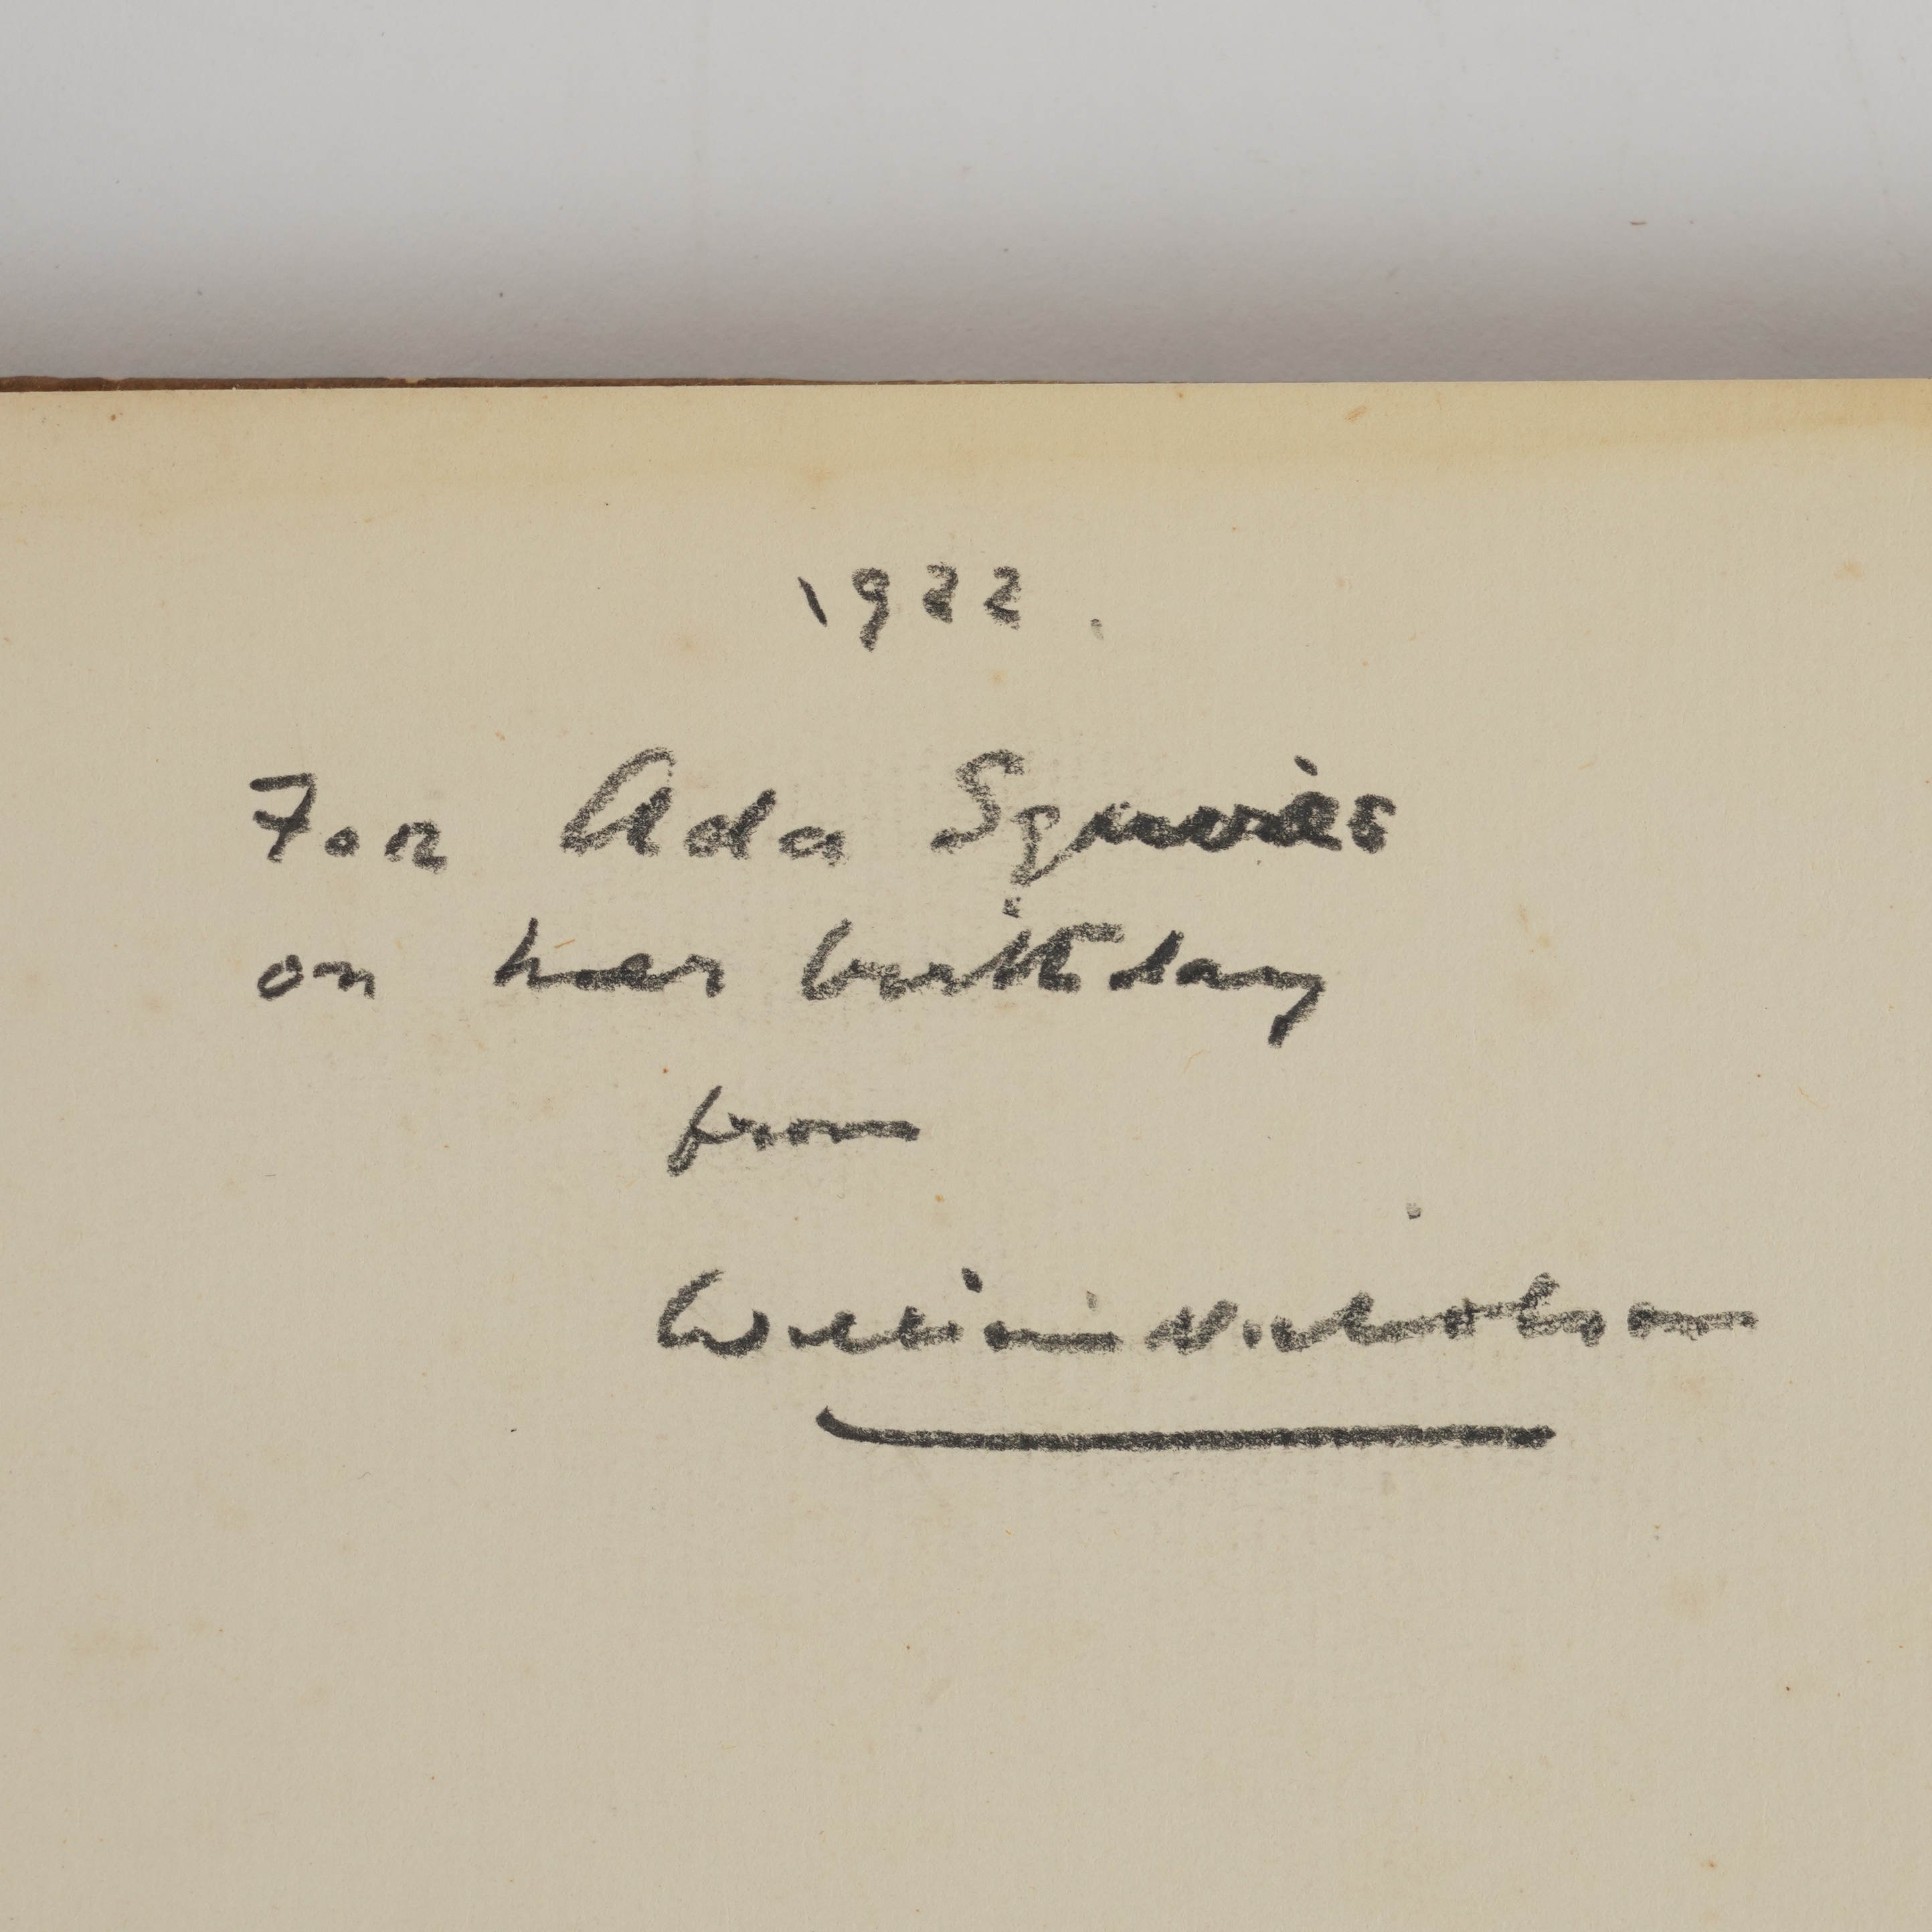 1922.
For Ada Squires
on her birthday
from
William Nicholson